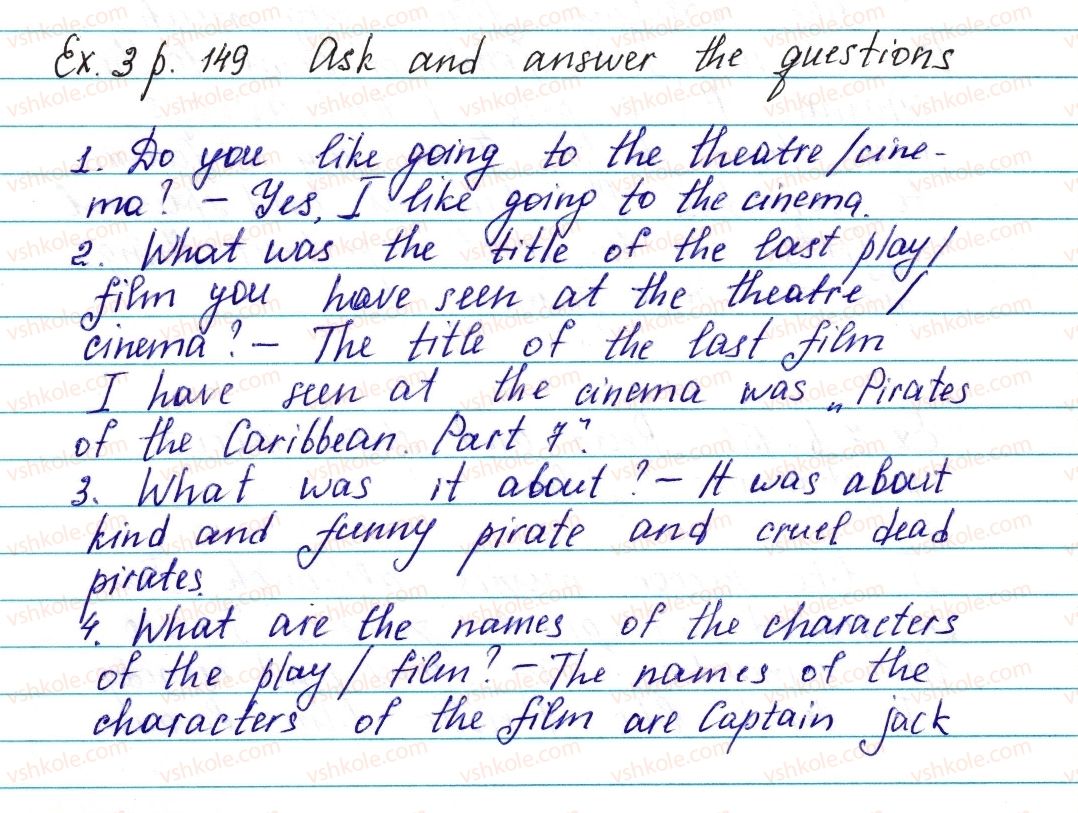 Ex. 3 p. 149 Ask and answer the questions
1. Do you like going to the theatre/cine-
ma? – Yes, I like going to the cinema.
2. What was the title of the last play/
film you have seen at the theatre /
cinema? – The title of the last film
I have seen at the cinema was „Pirates
of the Caribbean. Part 7".
3. What was it about? – It was about
kind and funny pirate and cruel dead
pirates.
4. What are the names of the characters
of the play / film? – The names of the
characters of the film are Captain jack
vshkole.com